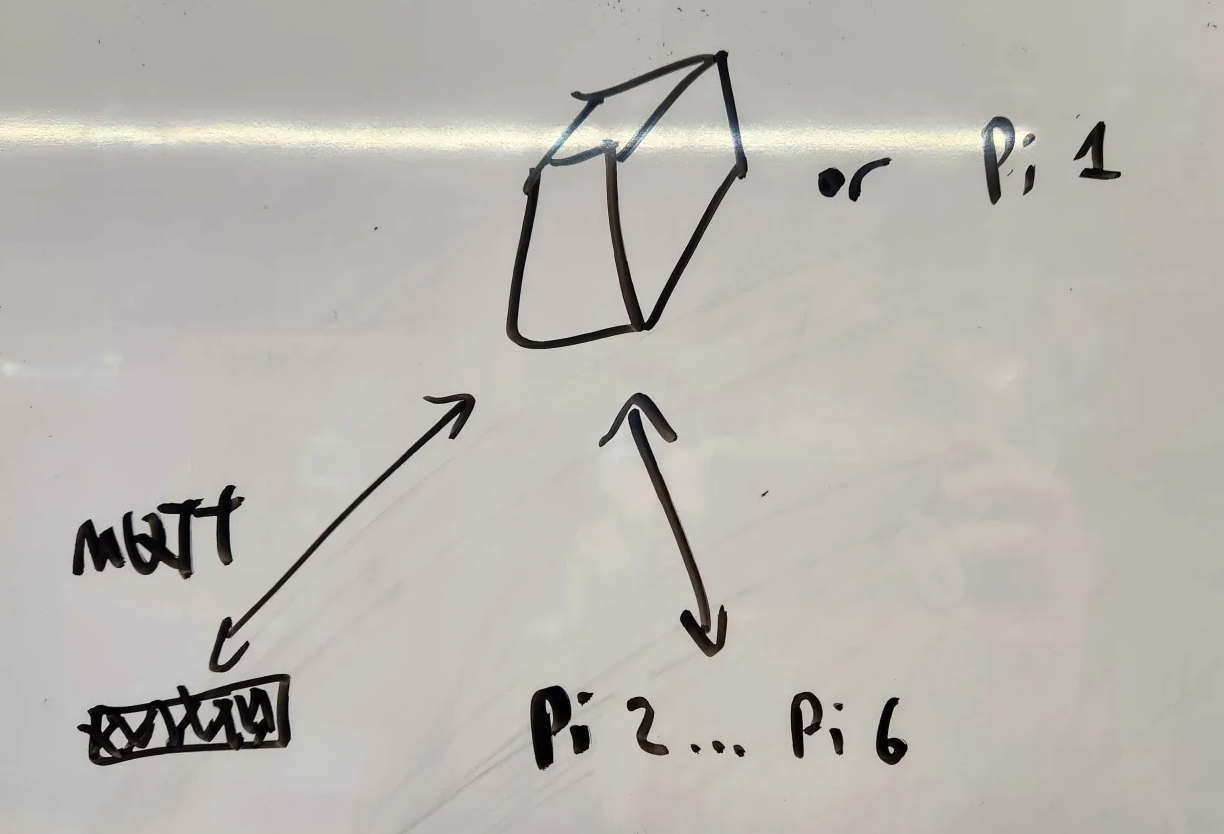 or Pi 1
MQTT
Pi 2... Pi 6